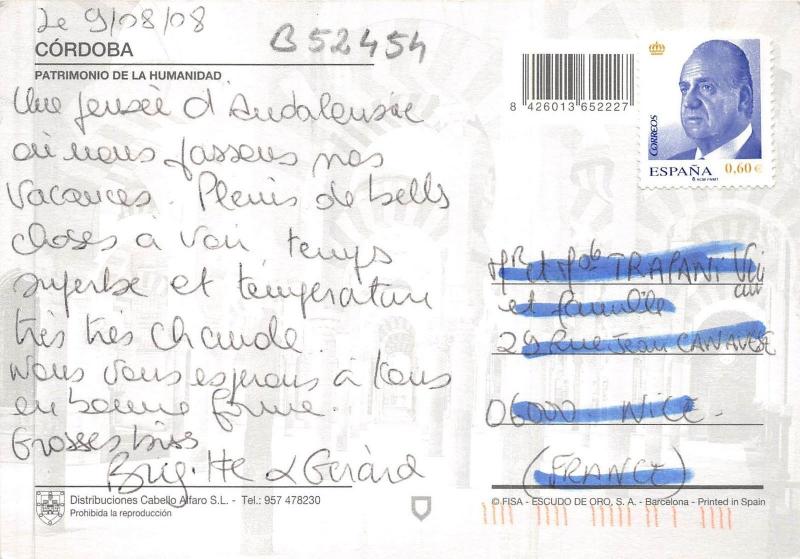 Le 9/08/08
B52454
CÓRDOBA
PATRIMONIO DE LA HUMANIDAD
Une pensée d'Andalousie
où nous passons nos
vacances. Pleins de bells
choses à voir, temps
superbe et température
très très chaude.
Nous vous espérons à tous
en bonne forme.
Grosses bises
Brigitte & Gérard
8 426013 652227
CORREOS
ESPAÑA 0,60 €
Mr et Me TRAPANI
et famille
29 Rue Jean CANAVESE
06000 NICE.
(FRANCE)
Distribuciones Cabello Alfaro S.L. - Tel.: 957 478230
Prohibida la reproducción
© FISA - ESCUDO DE ORO, S. A. - Barcelona - Printed in Spain